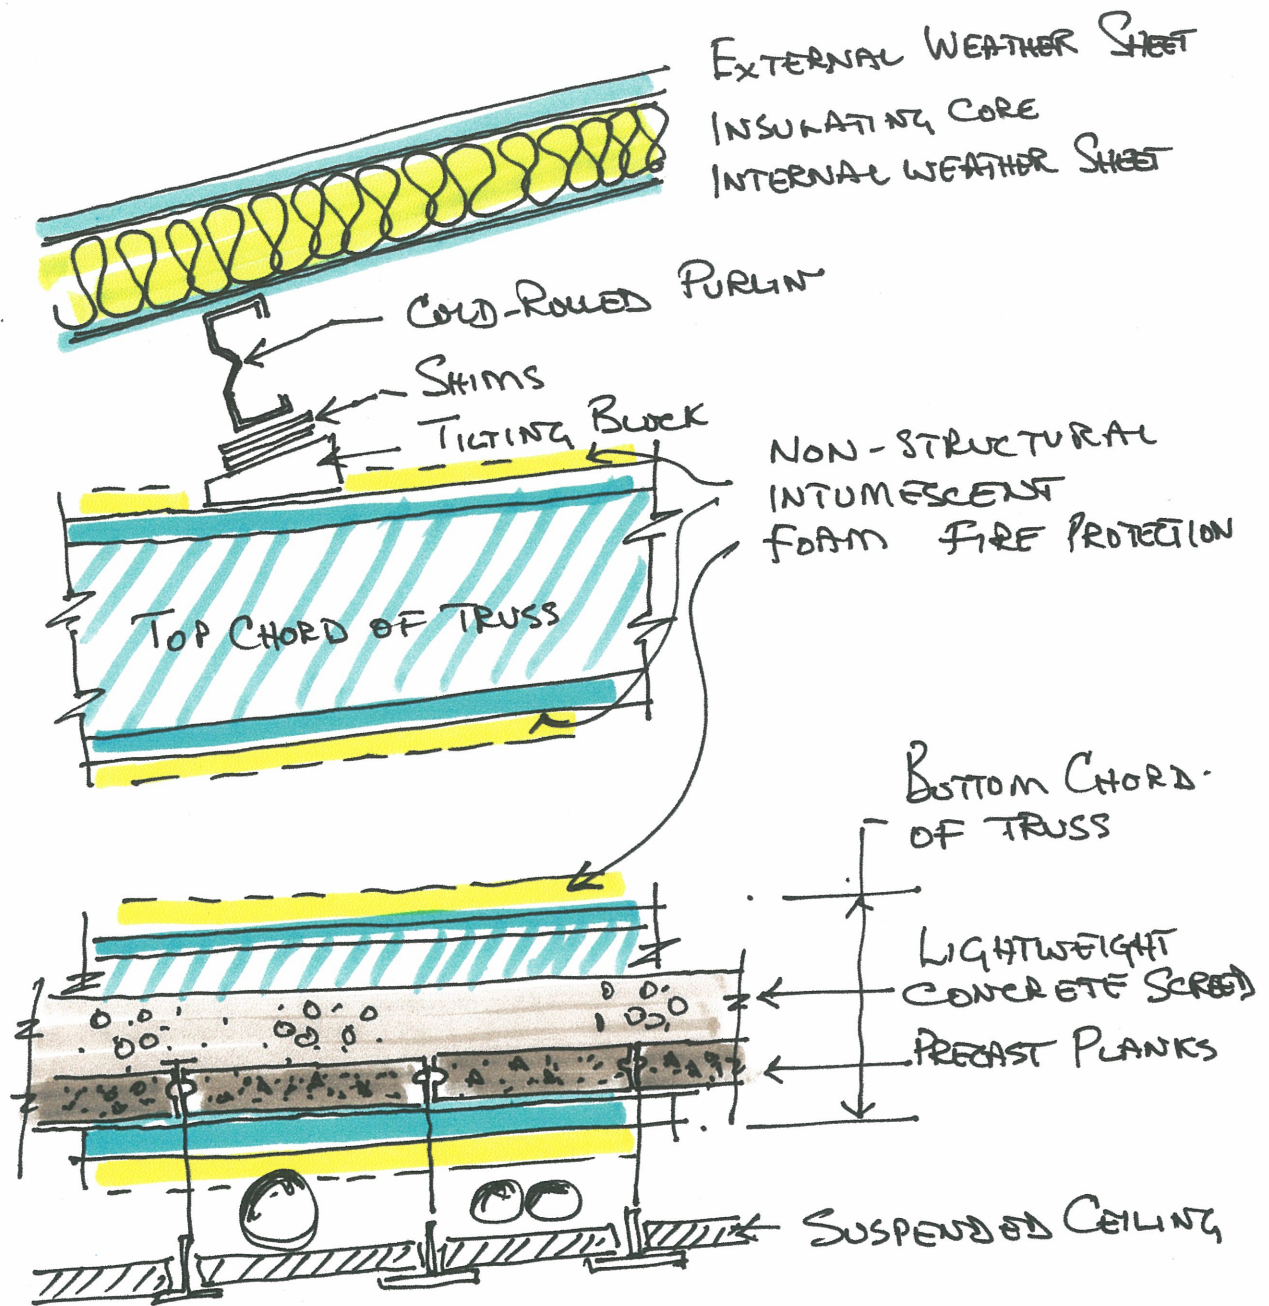 EXTERNAL WEATHER SHEET
INSULATING CORE
INTERNAL WEATHER SHEET
COLD-ROLLED PURLIN
SHIMS
TILTING BLOCK
NON-STRUCTURAL
INTUMESCENT
FOAM FIRE PROTECTION
TOP CHORD OF TRUSS
BOTTOM CHORD
OF TRUSS
LIGHTWEIGHT
CONCRETE SCREED
PRECAST PLANKS
SUSPENDED CEILING